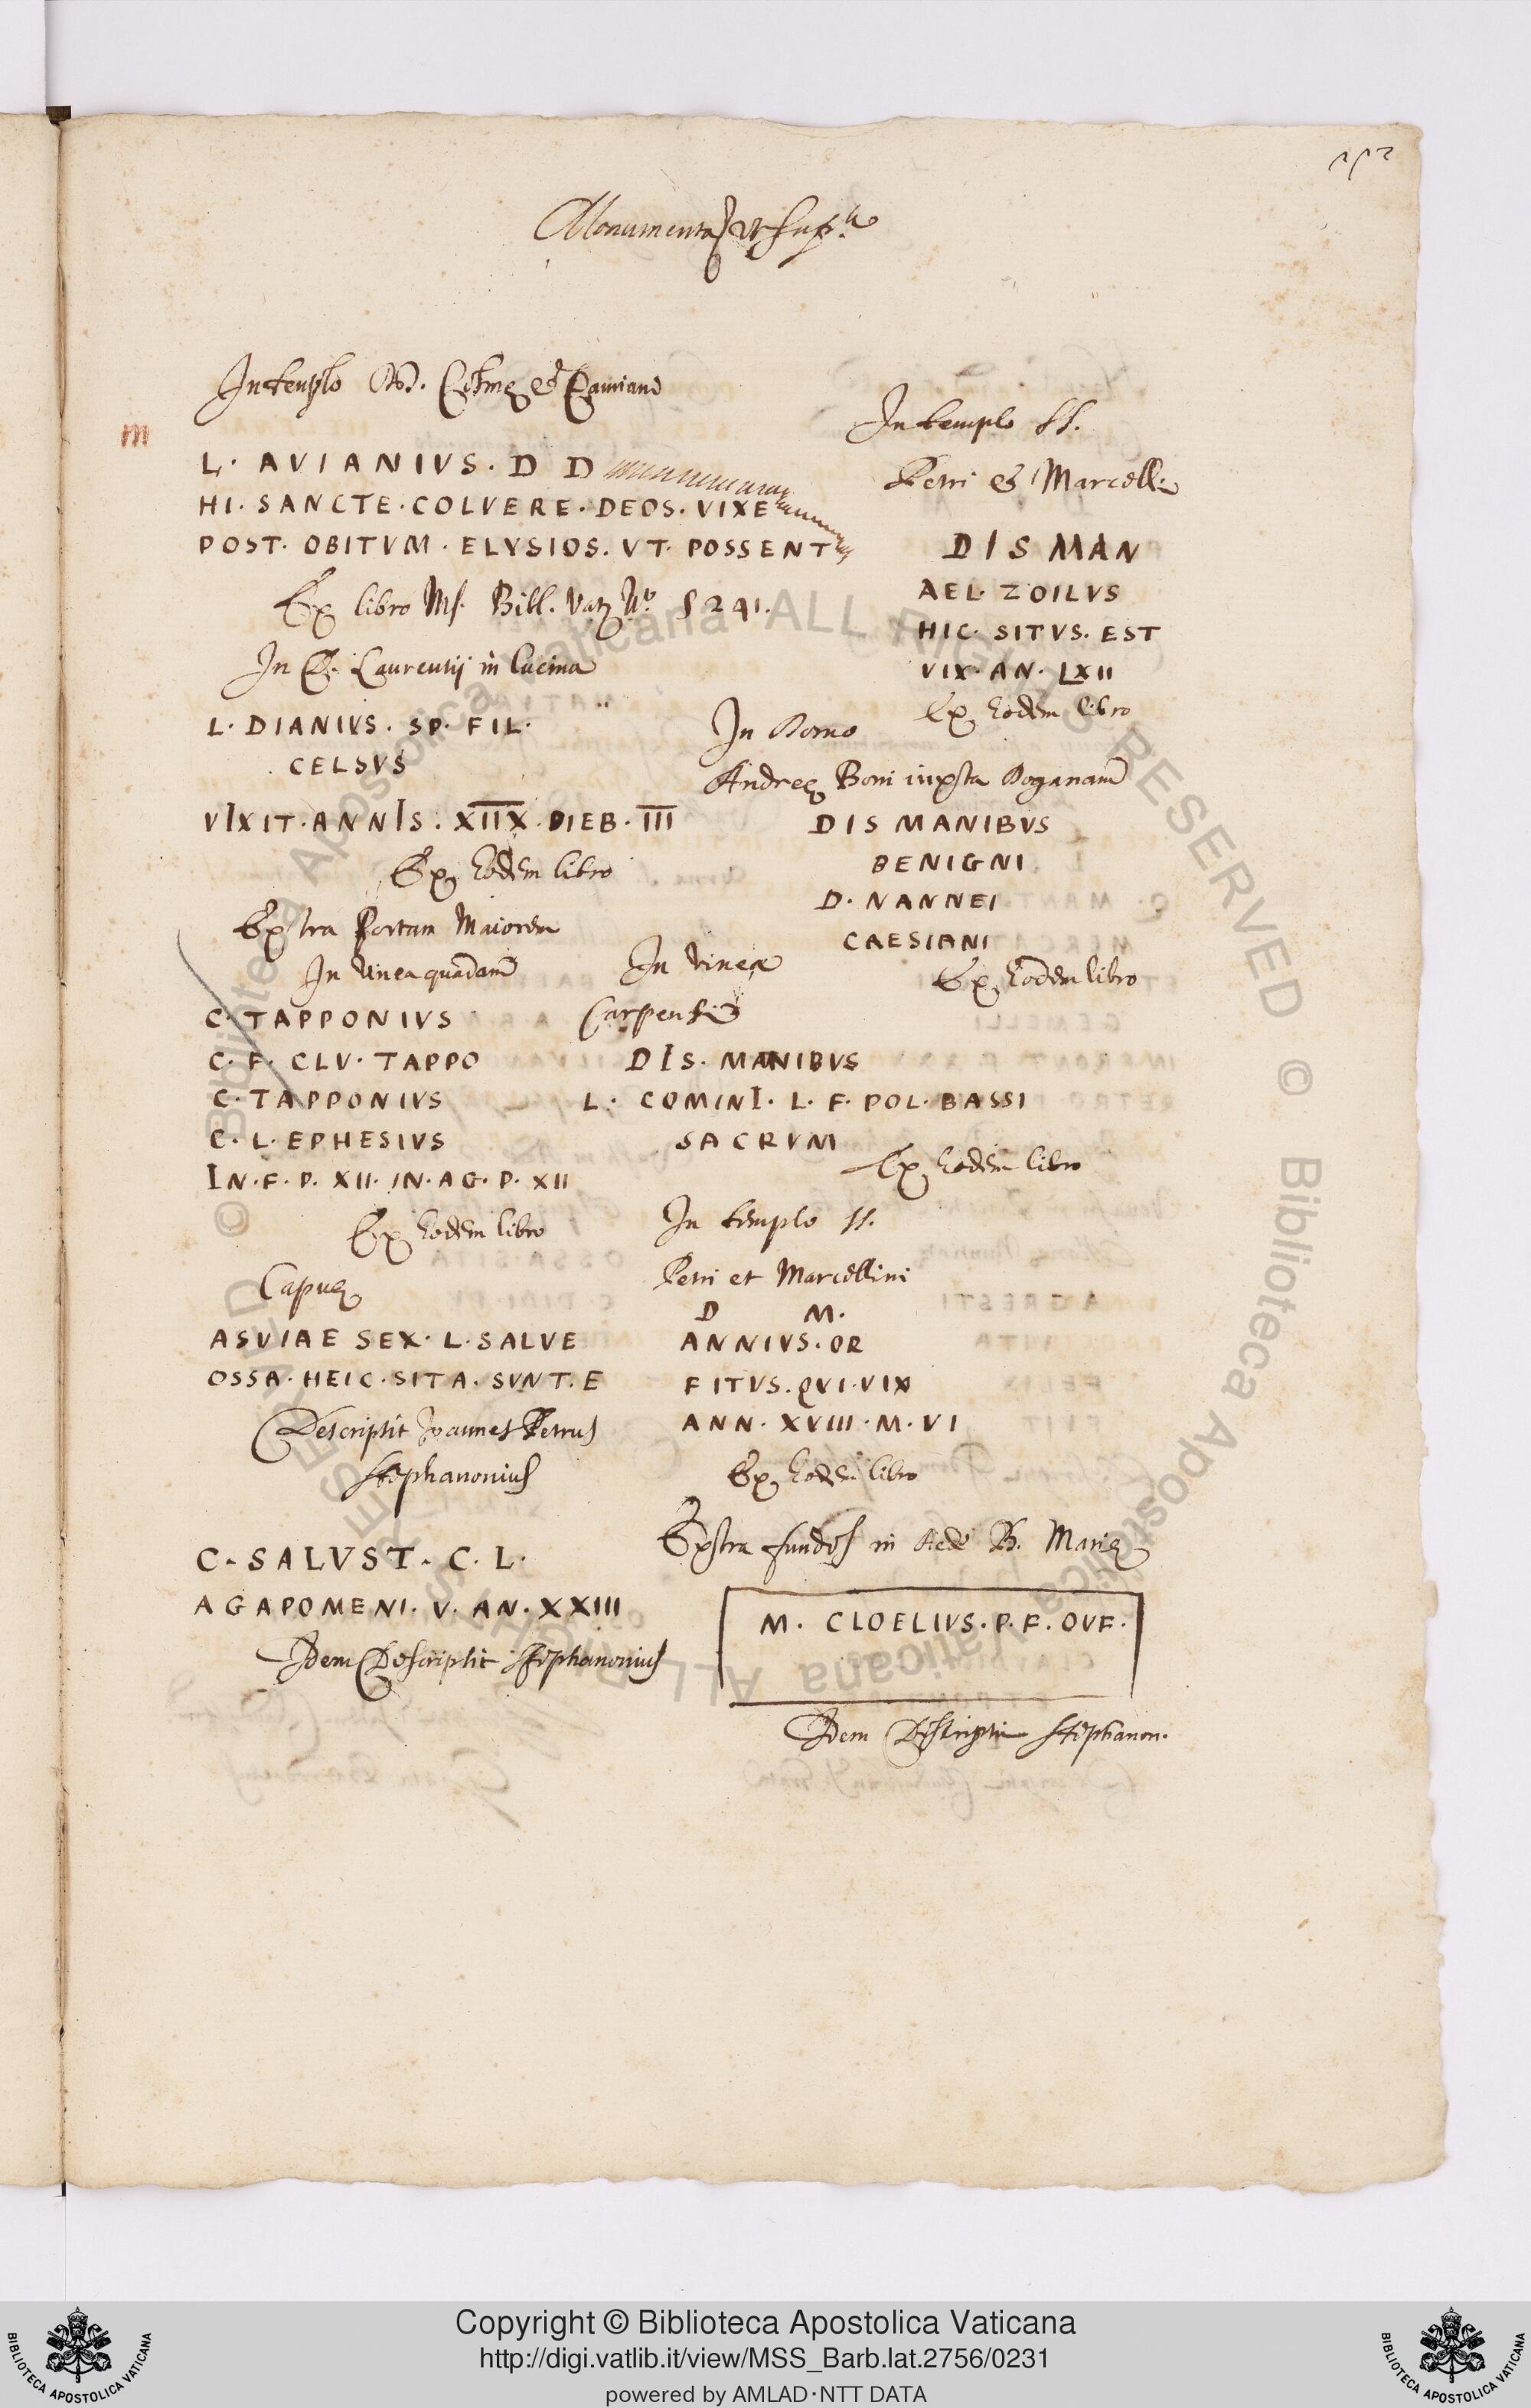 Monumenta ut sup.ª
In templo Cosme et Damiano
m
L. AVIANIVS. D D
HI. SANCTE. COLVERE. DEOS. VIXE
POST. OBITVM. ELYSIOS. VT. POSSENT
Ex libro Ms. Bibl. Vat. N.º 5241.
In S. Laurentij in Lucina
L. DIANIVS. SP. FIL.
CELSVS
VIXIT. ANNIS. XIIX. DIEB. III
Ex Eodem libro
Extra Portam Maiorem
In Vinea quadam
C. TAPPONIVS
C. F. CLV. TAPPO
C. TAPPONIVS
C. L. EPHESIVS
IN. F. P. XII. IN. AG. P. XII
Ex Eodem libro
Capuę
ASVIAE SEX. L. SALVE
OSSA. HEIC. SITA. SVNT. E
Descriptit Joannes Petrus
Stephanonius
C. SALVST. C. L.
AGAPOMENI. V. AN. XXIII
Idem Descriptit Stephanonius
In templo SS.
Petri & Marcelli
DIS MAN
AEL. ZOILVS
HIC. SITVS. EST
VIX. AN. LXII
Ex Eodem libro
In Domo
Andreę Boni iuxta Doganam
DIS MANIBVS
BENIGNI
D. NANNEI
CAESIANI
Ex Eodem libro
In Vinea
Carpensis
DIS. MANIBVS
L. COMINI. L. F. POL. BASSI
SACRVM
Ex Eodem libro
In templo SS.
Petri et Marcellini
D M.
ANNIVS. OR
FITVS. QVI. VIX
ANN. XVIII. M. VI
Ex Eodem libro
Extra fundos in Aede B. Marię
M. CLOELIVS. P. F. OVF.
Idem Stephanon.
© Biblioteca Apostolica Vaticana ALL RIGHTS RESERVED
© Biblioteca Apostolica Vaticana ALL RIGHTS RESERVED
Copyright © Biblioteca Apostolica Vaticana
http://digi.vatlib.it/view/MSS_Barb.lat.2756/0231
powered by AMLAD·NTT DATA
BIBLIOTECA APOSTOLICA VATICANA
BIBLIOTECA APOSTOLICA VATICANA